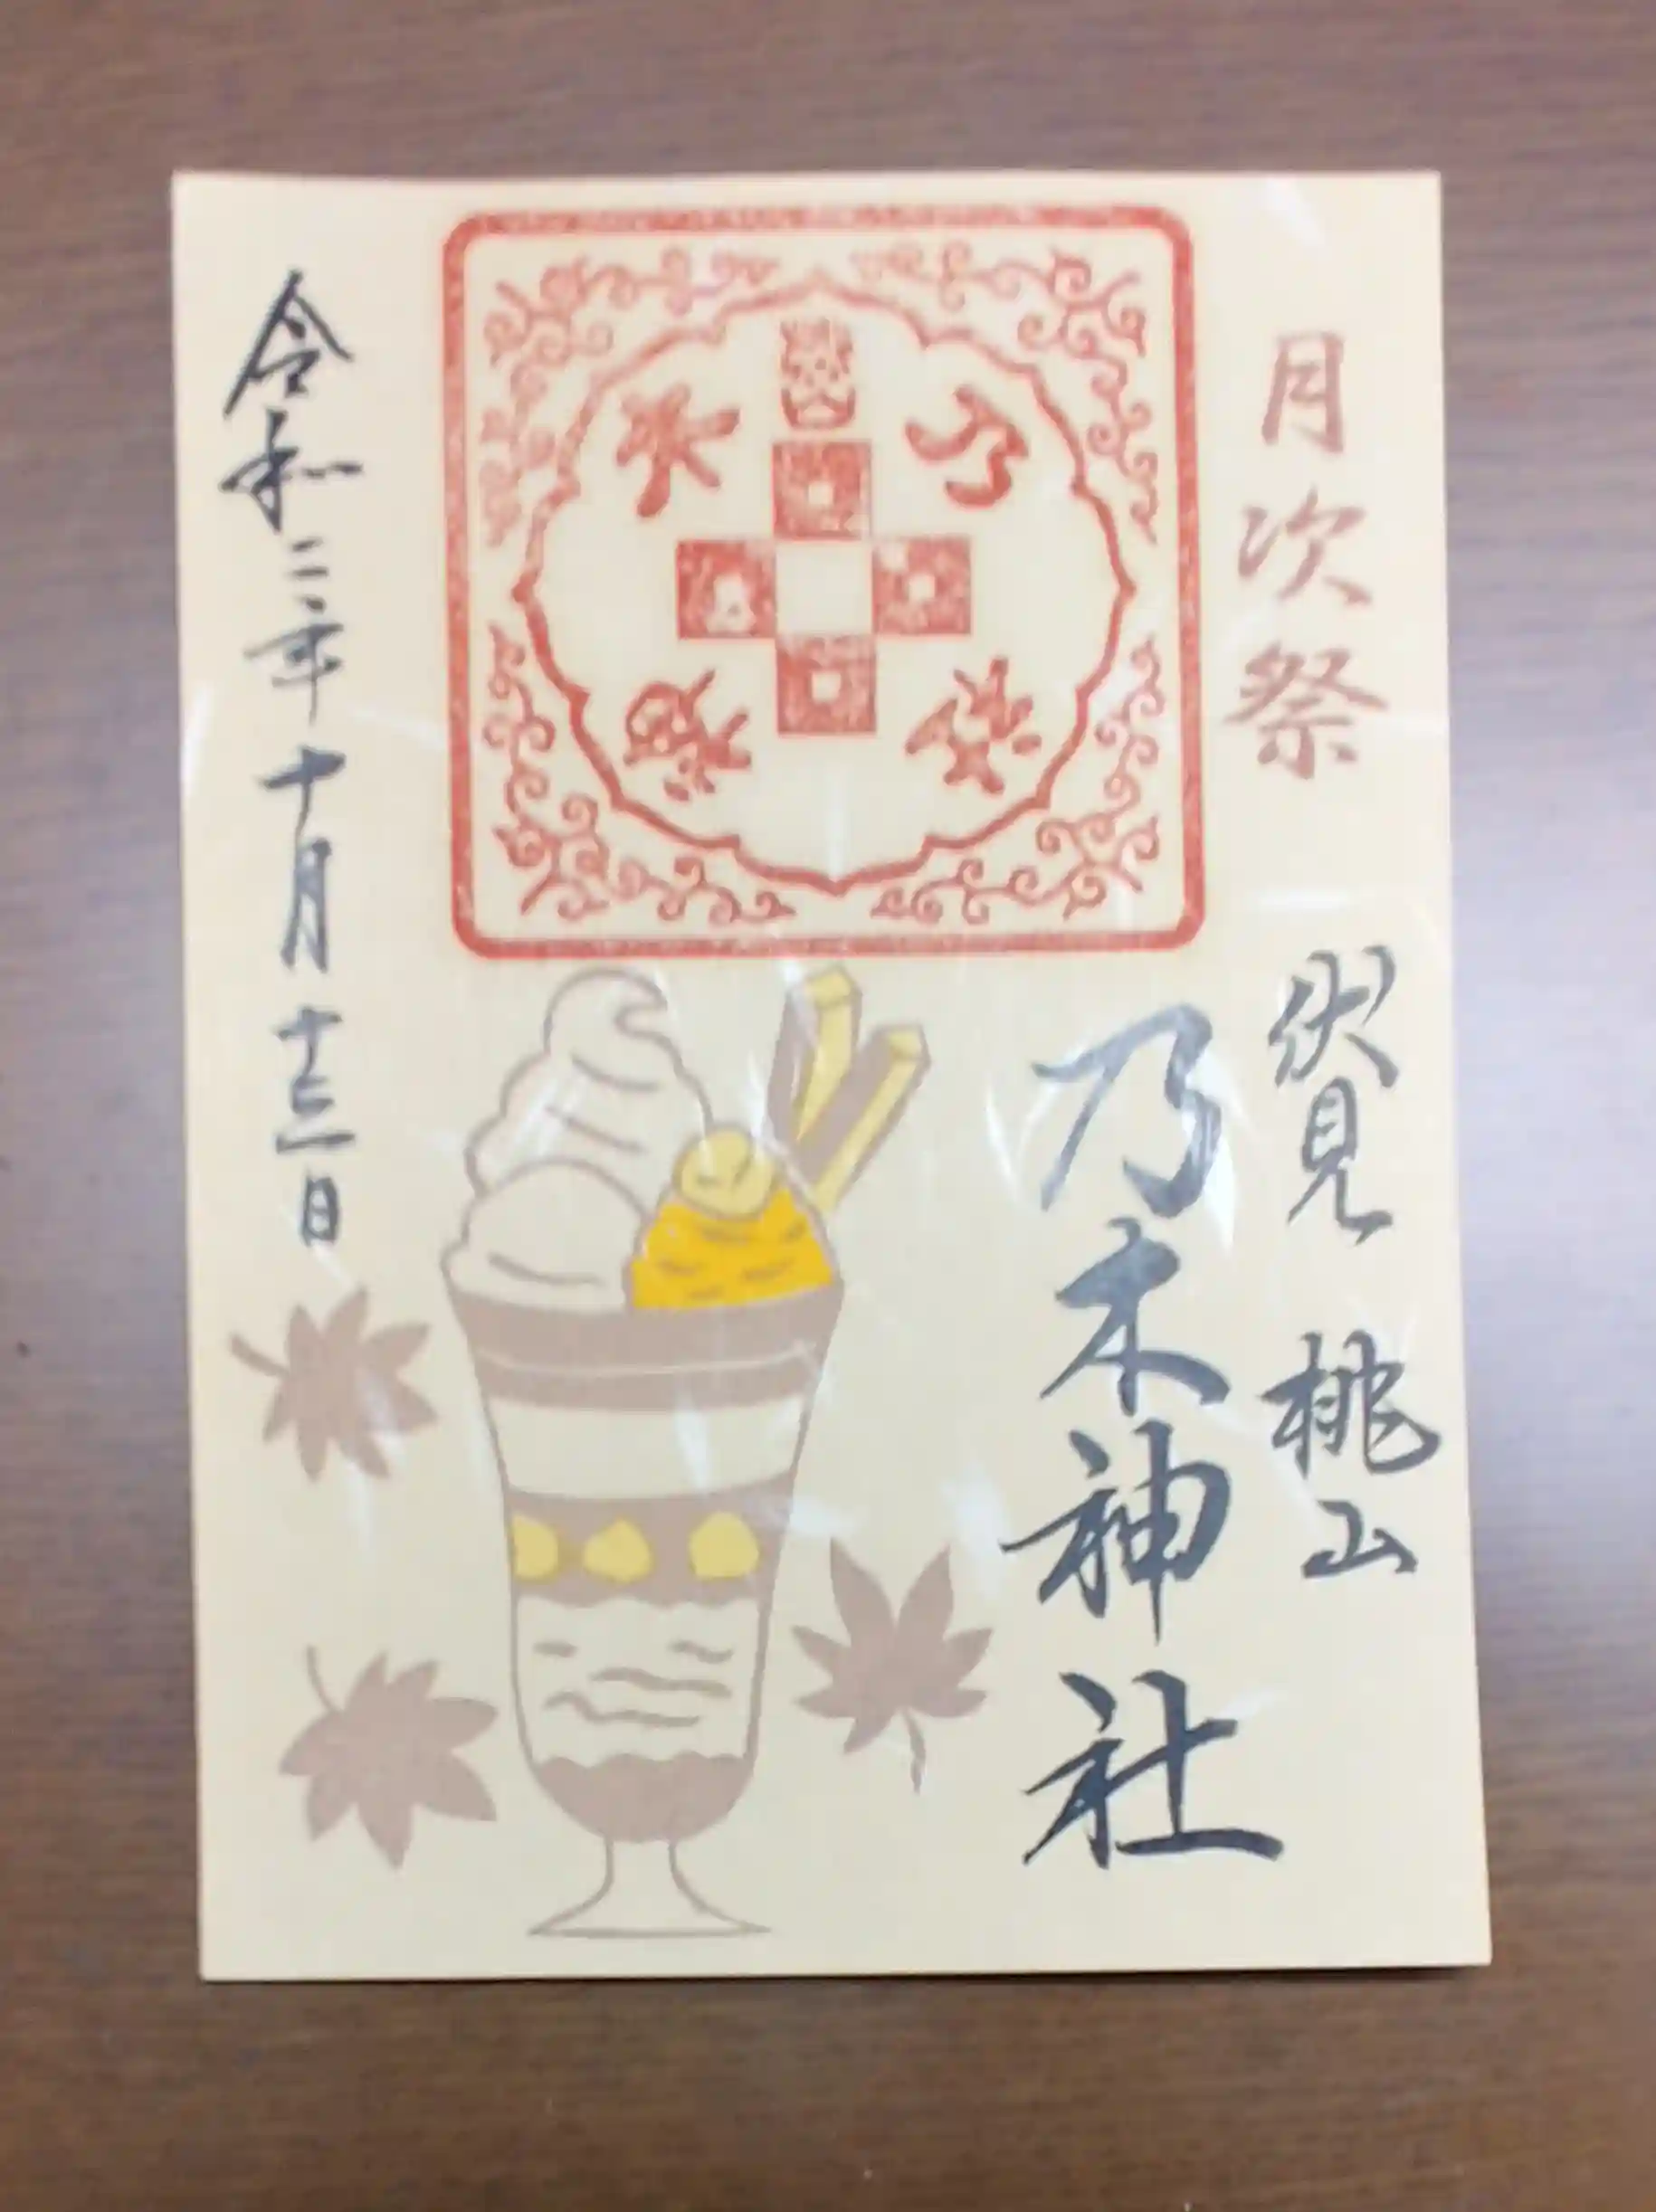 月次祭
伏見 桃山
乃木神社
令和二年十月十三日